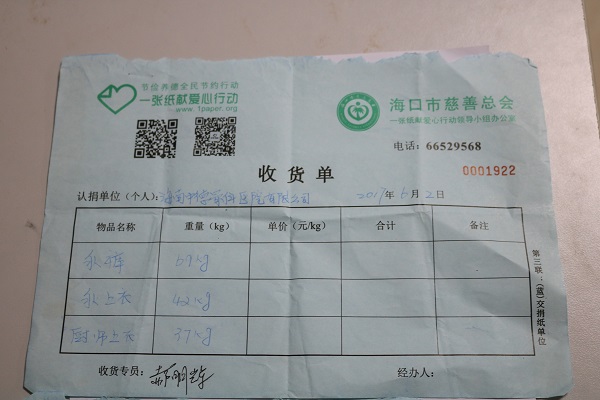 节俭养德全民节约行动
一张纸献爱心行动
www.1paper.org
海口市慈善总会
一张纸献爱心行动领导小组办公室
电话：66529568
收货单
0001922
认捐单位（个人）：
年6月2日
物品名称 重量（kg） 单价（元/kg） 合计 备注
59kg
上衣 42kg
厨师上衣 37kg
第三联：（蓝）交捐纸单位
收货专员： 经办人：